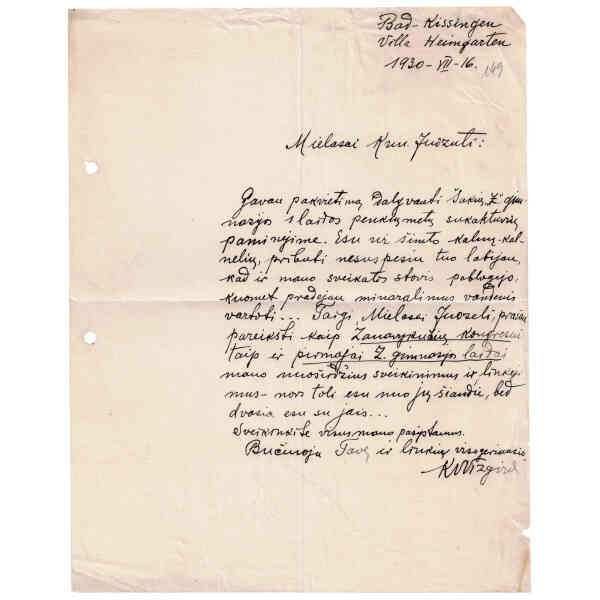 Bad-Kissingen
Villa Heimgarten
1930-VII-16.
149
Mielasai Kun. Juozuti:
Gavau pakvietimą dalyvauti Šakių "Ž" gim-
nazijos I laidos penkių metų sukaktuvių
paminėjime. Esu už šimto kalnų-kal-
nelių, pributi nesuspėsiu tuo labjau,
kad ir mano sveikatos stovis pablogėjo,
kuomet pradėjau mineralinius vandenis
vartoti... Taigi Mielasai Juozeli, prašau
pareikšti kaip Zanavykučių kongresui
taip ir pirmajai Ž. gimnazijos laidai
mano nuoširdžius sveikinimus ir linkėji-
mus - nors toli esu nuo jų šiandie, bet
dvasia esu su jais...
Sveikinkite visus mano pažįstamus.
Bučiuoju Tavę ir linkiu visogeriausio